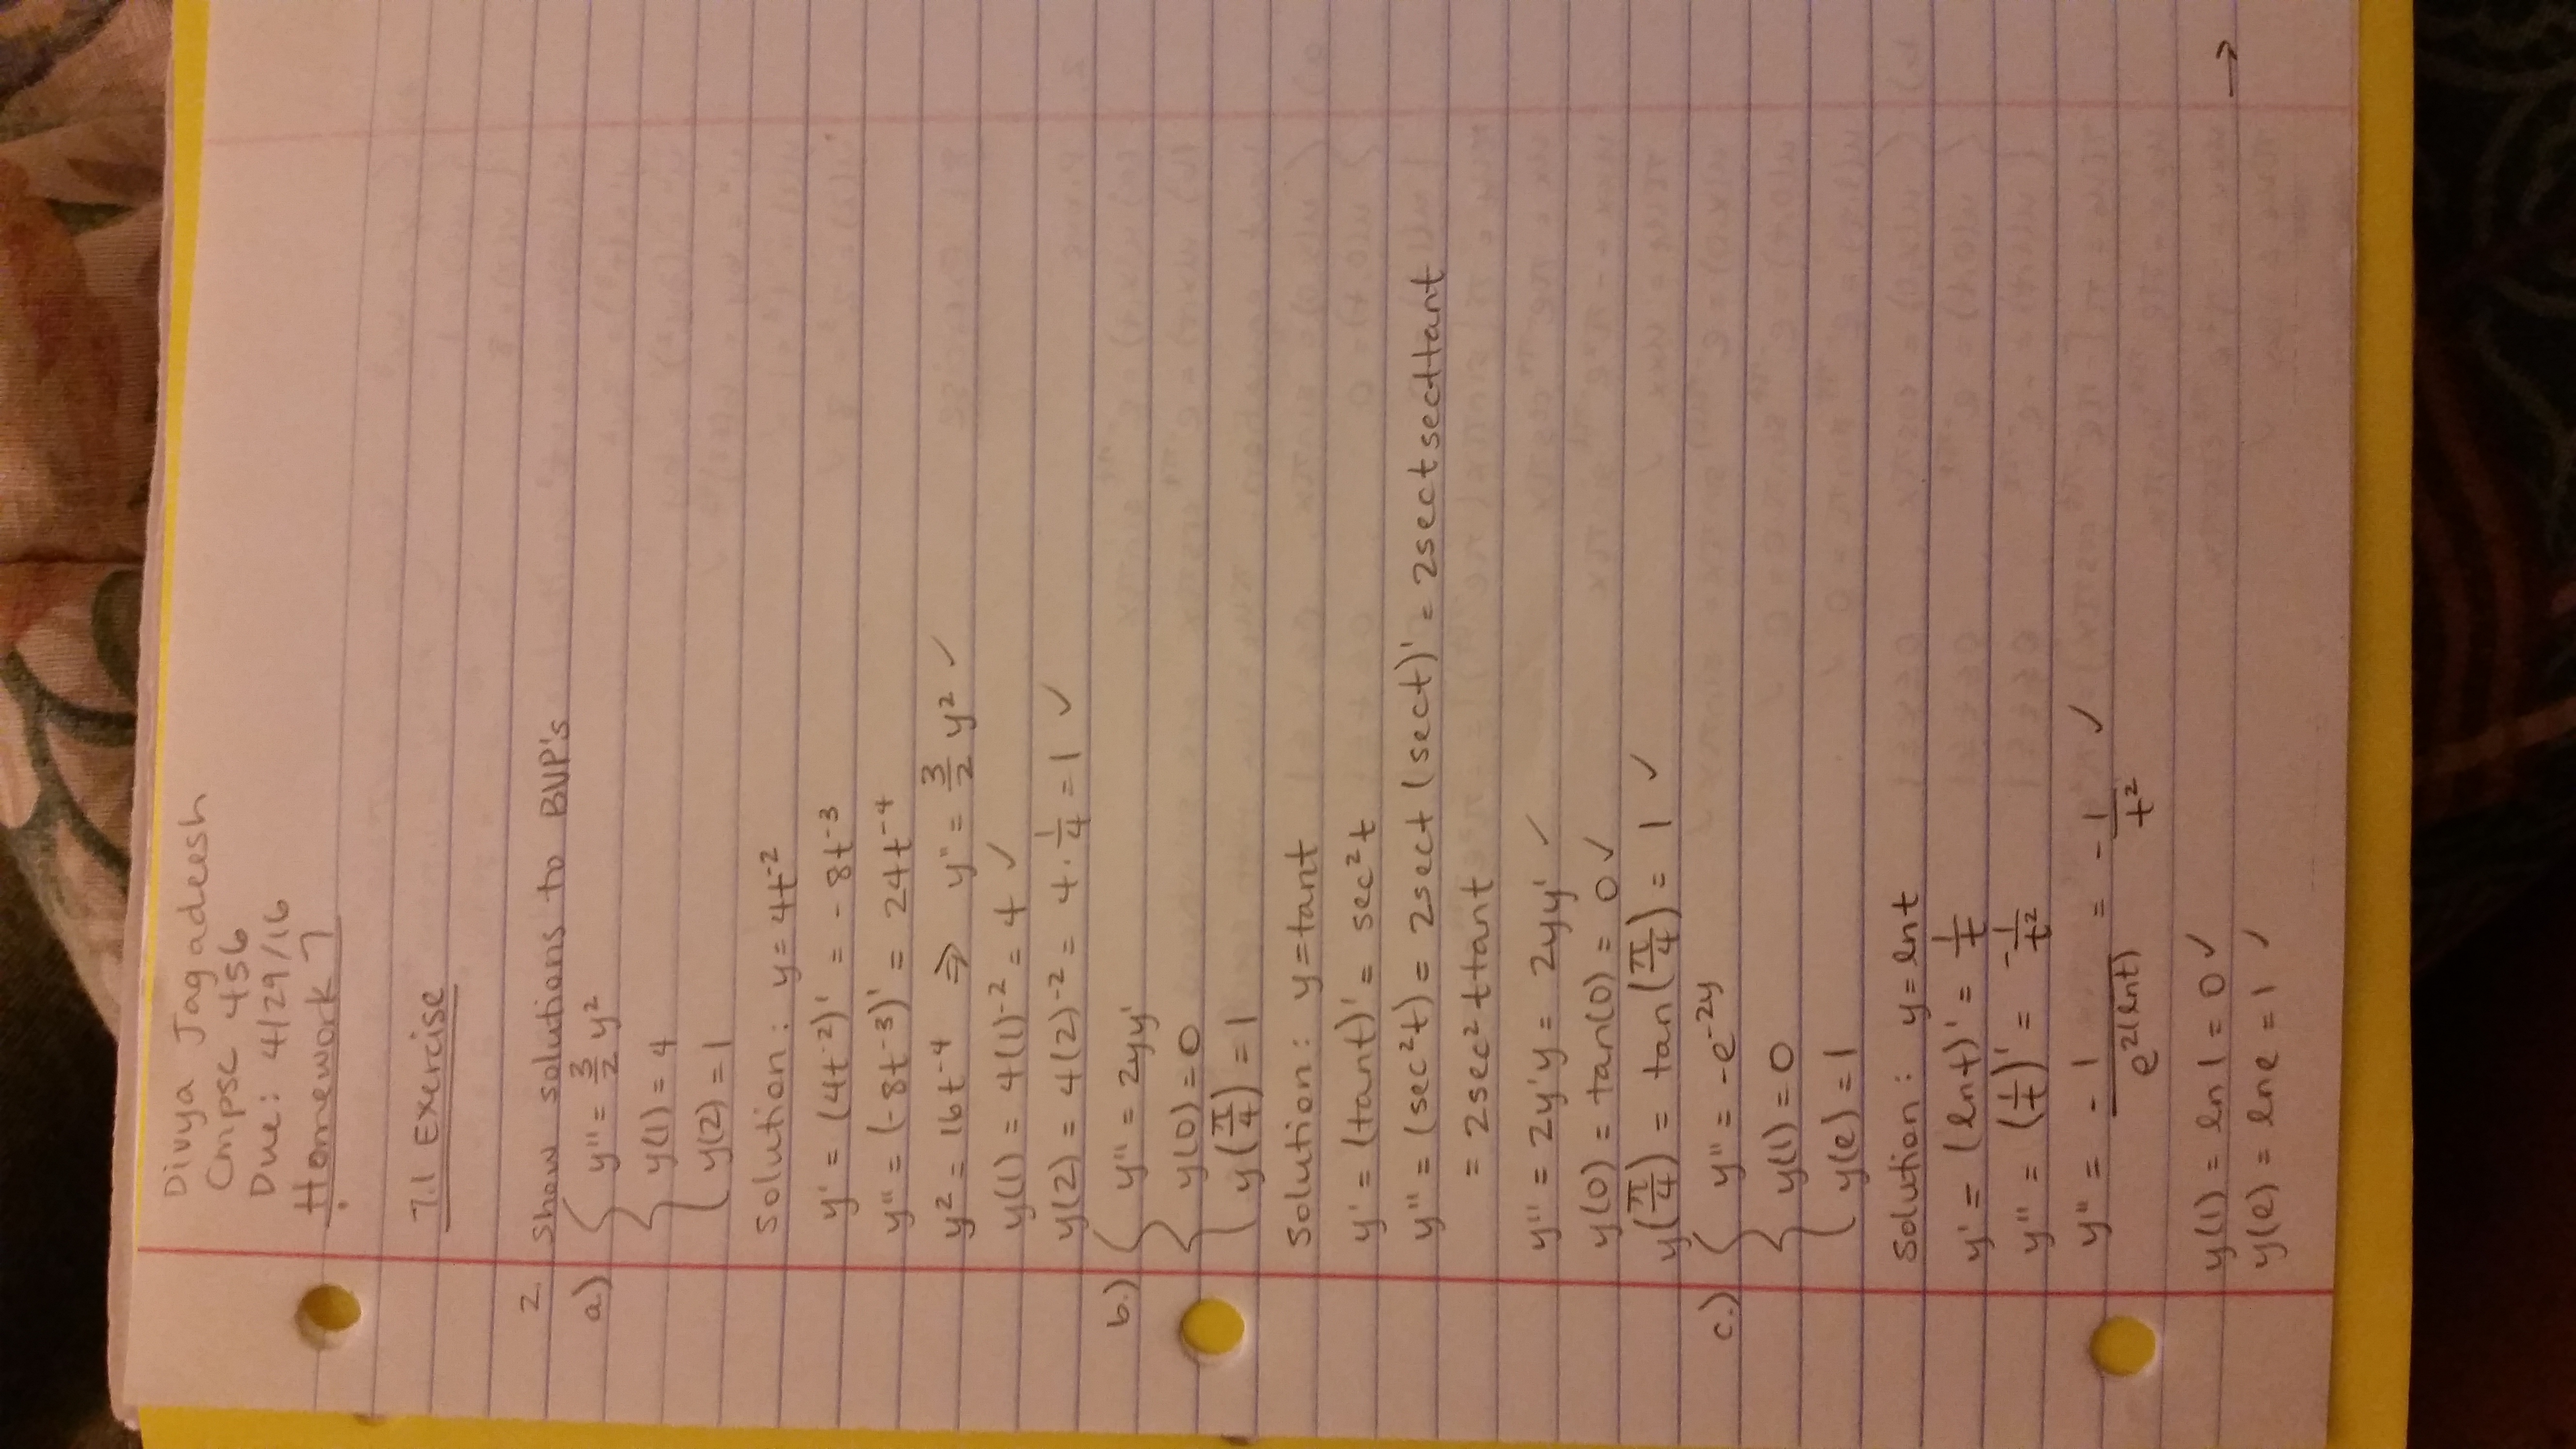 Divya Jagadeesh
Cmpsc 456
Due: 4/29/16
Homework 7
7.1 Exercise
2. Show solutions to BVP's
a) { y'' = 3/2 y²
y(1) = 4
y(2) = 1
Solution: y = 4t⁻²
y' = (4t⁻²)' = -8t⁻³
y'' = (-8t⁻³)' = 24t⁻⁴
y² = 16t⁻⁴ ⇒ y'' = 3/2 y² ✓
y(1) = 4(1)⁻² = 4 ✓
y(2) = 4(2)⁻² = 4·1/4 = 1 ✓
b.) { y'' = 2yy'
y(0) = 0
y(π/4) = 1
Solution: y = tant
y' = (tant)' = sec²t
y'' = (sec²t) = 2sect (sect)' = 2sectsecttant
= 2sec²ttant
y'' = 2y'y = 2yy' ✓
y(0) = tan(0) = 0 ✓
y(π/4) = tan(π/4) = 1 ✓
c.) { y'' = -e⁻²ʸ
y(1) = 0
y(e) = 1
Solution: y = lnt
y' = (lnt)' = 1/t
y'' = (1/t)' = -1/t²
y'' = -1/e²⁽ˡⁿᵗ⁾ = -1/t² ✓
y(1) = ln1 = 0 ✓
y(e) = lne = 1 ✓
→